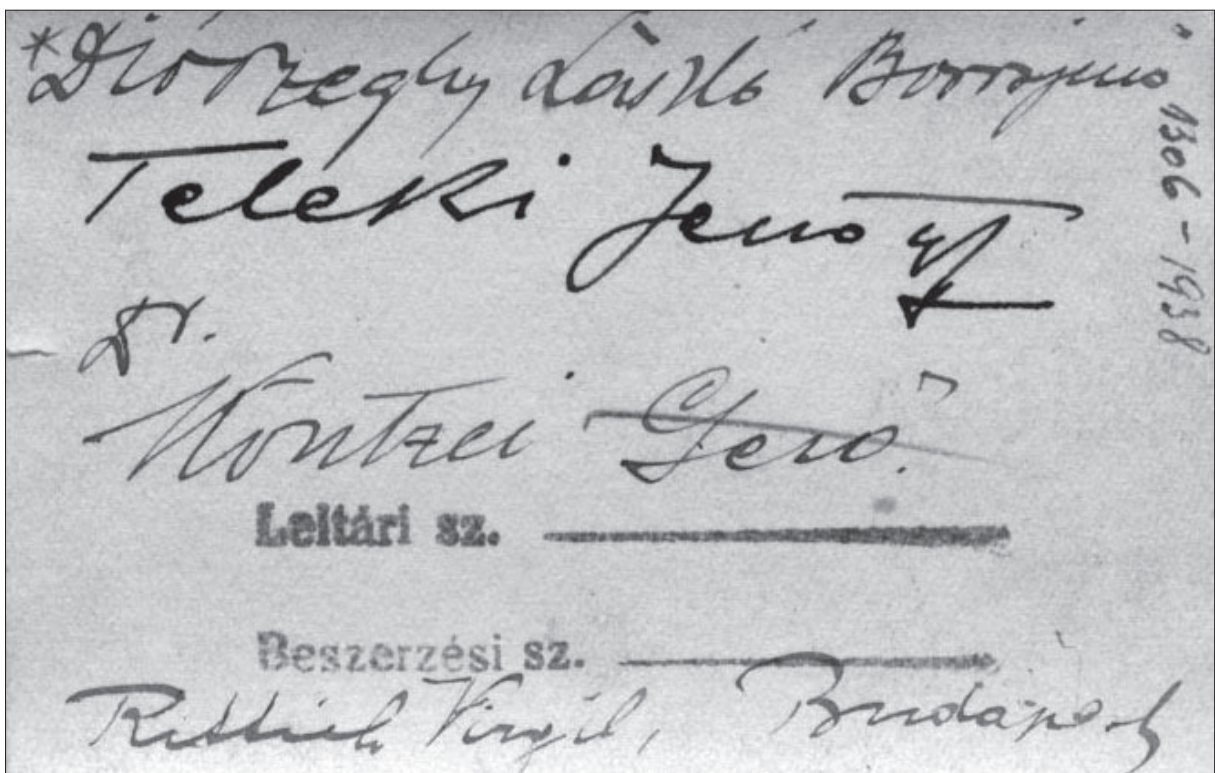 *Diószeghy László Borosjenő
Teleki Jenő gf
Dr.
Köntzei Gerő.
Leltári sz.
Beszerzési sz.
Rittich Virgil, Budapest
1306-1938